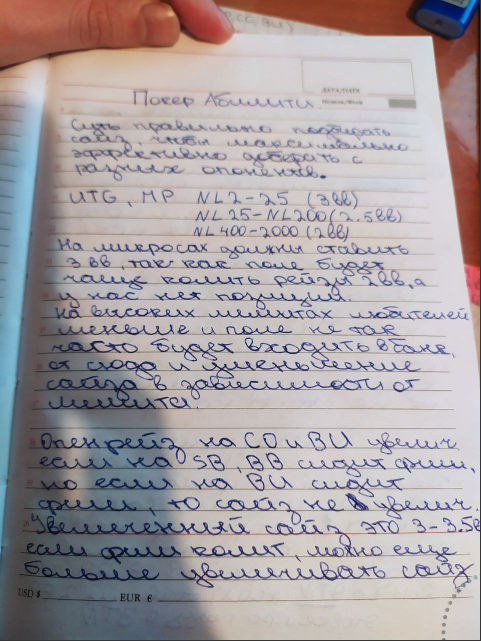 ДАТА/DATE
Неделя/Week
Покер Абилити
Суть правильно подбирать
сайз, чтобы максимально
эффективно добирать с
разных опонентов.
UTG, MP NL2-25 (3вв)
NL25-NL200 (2.5вв)
NL400-2000 (2вв)
На микросах должны ставить
3вв, так как поле будет
чаще колить рейзы 2вв, а
у нас нет позиции.
на высоких лимитах любителей
меньше и поле не так
часто будет входить в банк,
от сюда и уменьшение
сайза в зависимости от
лимита.
Опенрейз на CO и BU увелич.
если на SB, BB сидит фиш,
но если на BU сидит
фиш, то сайз не увелич.
Увеличенный сайз это 3-3.5в
если фиш колит, можно еще
больше увеличивать сайз
USD $
EUR €